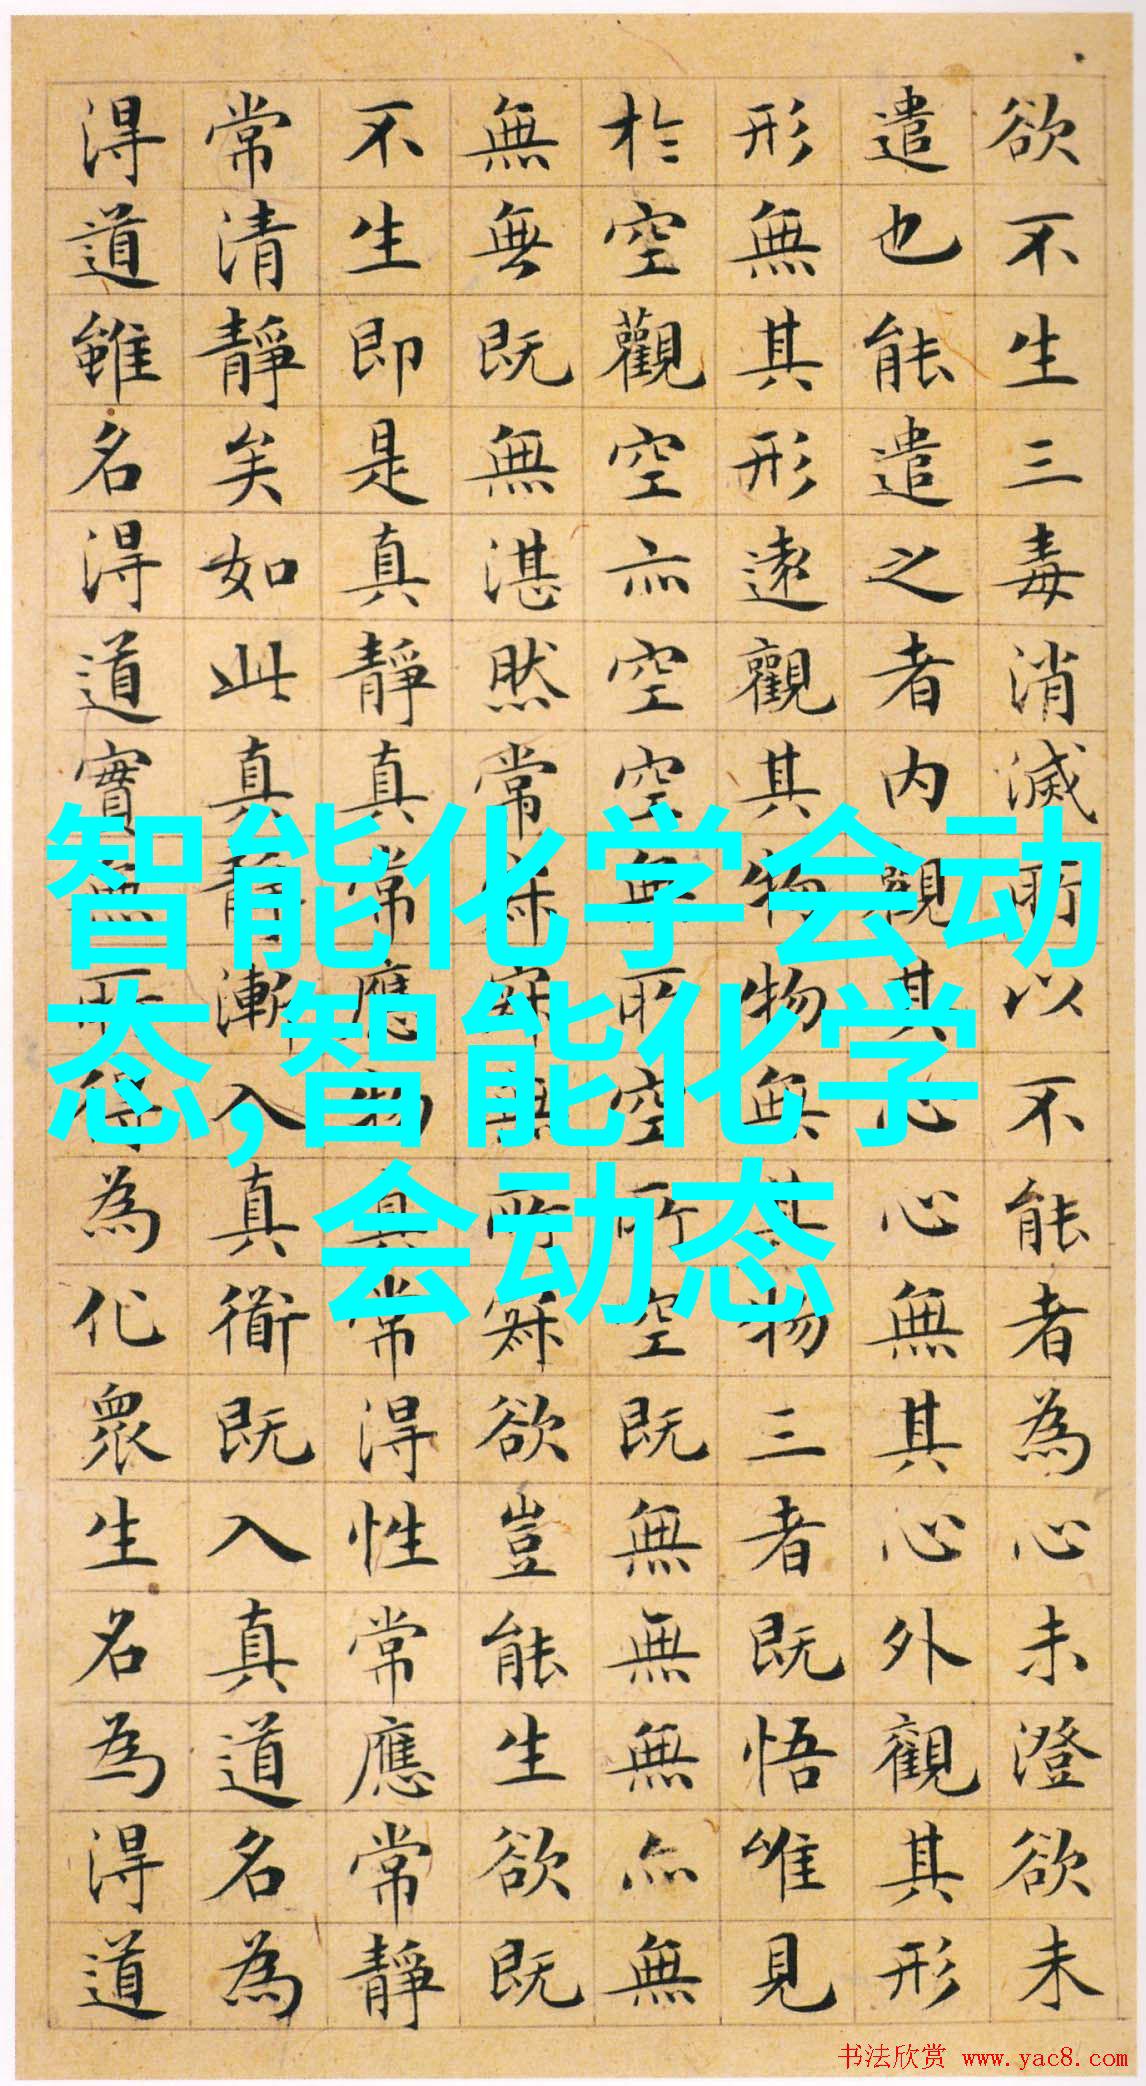 欲不生三毒消滅所以不能者為心未澄欲未
遣也能遣之者内觀其心心無其心外觀其形
形無其形遠觀其物物無其物三者既悟唯見
於空觀空亦空空無所空所空既無無無亦無
無無既無湛然常寂寂無所寂欲豈能生欲既
不生即是真靜真常應物真常得性常應常靜
常清靜矣如此真靜漸入真衜既入真道名為
得道雖名得道實無所得為化眾生名為得道
智能化学会动
态,智能化学
会动态
书法欣赏 www.yac8.com